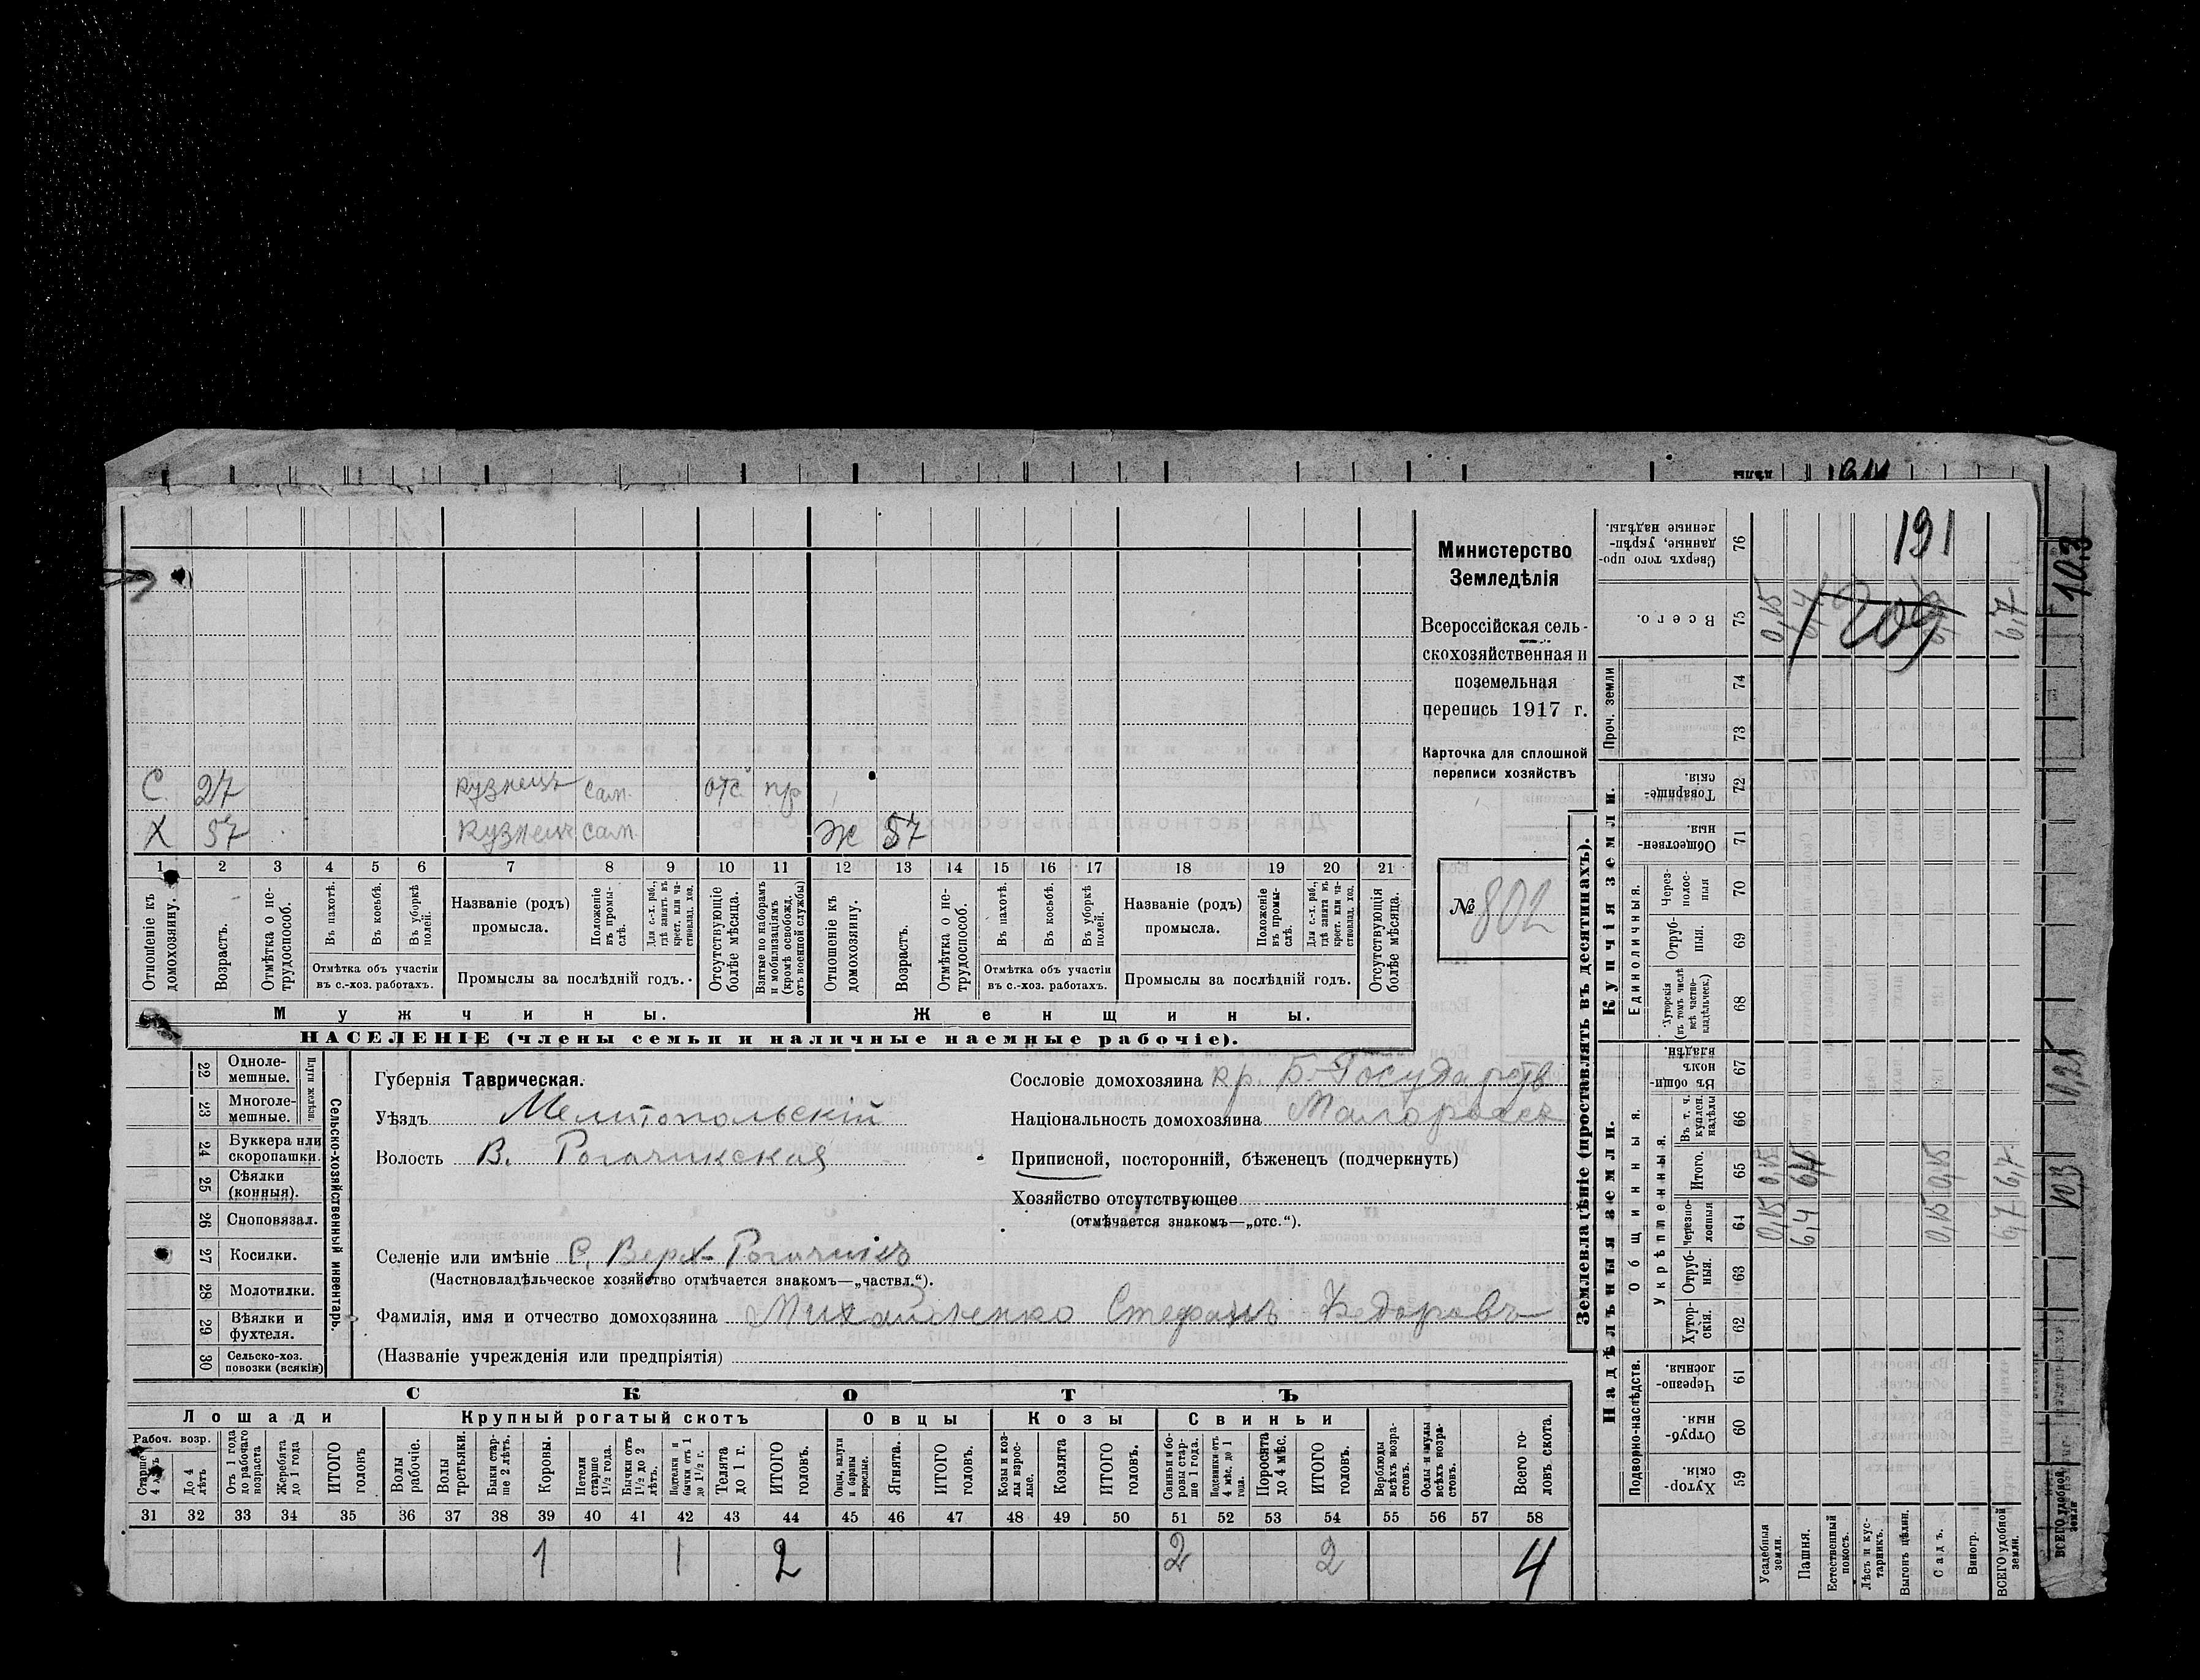 191
209
10,3
Министерство
Земледѣлія
Всероссійская сель-
скохозяйственная и
поземельная
перепись 1917 г.
Карточка для сплошной
переписи хозяйствъ
№ 802
С 27 кузнецъ сам. отс пр
Х 57 кузнецъ сам. Ж 57
1 2 3 4 5 6 7 8 9 10 11 12 13 14 15 16 17 18 19 20 21
Отношеніе къ домохозяину.
Возрастъ.
Отмѣтка о не-трудоспособ.
Въ пахотѣ.
Въ косьбѣ.
Въ уборкѣ полей.
Отмѣтка объ участіи
въ с.-хоз. работахъ.
Названіе (родъ)
промысла.
Положеніе въ промы-слѣ.
Для с.-х. раб., гдѣ занятъ въ крест. или ча-ствовлад. хоз.
Промыслы за послѣдній годъ.
Отсутствующіе болѣе мѣсяца.
Взятые по наборамъ и мобилизаціямъ (кромѣ освобожд. отъ военной службы)
Отношеніе къ домохозяину.
Возрастъ.
Отмѣтка о не-трудоспособ.
Въ пахотѣ.
Въ косьбѣ.
Въ уборкѣ полей.
Отмѣтка объ участіи
въ с.-хоз. работахъ.
Названіе (родъ)
промысла.
Положеніе въ промы-слѣ.
Для с.-х. раб., гдѣ занята въ крест. или ча-ствовлад. хоз.
Промыслы за послѣдній годъ.
Отсутствующія болѣе мѣсяца.
Мужчины. Женщины.
НАСЕЛЕНІЕ (члены семьи и наличные наемные рабочіе).
22 Одноле-мешные.
23 Многоле-мешные.
Плуги желѣзн.
24 Буккера или скоропашки.
25 Сѣялки (конныя).
26 Сноповязал.
27 Косилки.
28 Молотилки.
29 Вѣялки и фухтеля.
30 Сельско-хоз. повозки (всякія)
Сельско-хозяйственный инвентарь.
Губернія Таврическая.
Уѣздъ Мелитопольскій
Волость В. Рогачикская
Селеніе или имѣніе С. Верх-Рогачикъ
(Частновладѣльческое хозяйство отмѣчается знакомъ—„частвл.“).
Фамилія, имя и отчество домохозяина Михайленко Стефанъ Федоровъ
(Названіе учрежденія или предпріятія)
Сословіе домохозяина кр. Б. Государств
Національность домохозяина Малороссъ
Приписной, посторонній, бѣженецъ (подчеркнуть)
Хозяйство отсутствующее
(отмѣчается знакомъ—„отс.“).
СКОТЪ
Лошади Крупный рогатый скотъ Овцы Козы Свиньи
Рабоч. возр.
Старше 4 лѣтъ
До 4 лѣтъ
Отъ 1 года до рабочаго возраста
Жеребята до 1 года
ИТОГО головъ
Волы рабочіе.
Волы третьяки.
Быки стар-ше 2 лѣтъ.
Коровы.
Нетели старше 1½ года.
Бычки отъ 1½ до 2 лѣтъ.
Подтелки и бычки отъ 1 до 1½ г.
Телята до 1 г.
ИТОГО головъ.
Овцы, валухи и бараны взрослые.
Ягнята.
ИТОГО головъ.
Козы и коз-лы взрос-лые.
Козлята
ИТОГО головъ.
Свиньи и бо-ровы стар-ше 1 года.
Подсвинки отъ 4 мѣс. до 1 года.
Поросята до 4 мѣс.
ИТОГО головъ.
Верблюды всѣхъ возра-стовъ.
Ослы и мулы всѣхъ возра-стовъ.
Всего го-ловъ скота.
31 32 33 34 35 36 37 38 39 40 41 42 43 44 45 46 47 48 49 50 51 52 53 54 55 56 57 58
1 1 2 2 2 4
Землевладѣніе (проставлять въ десятинахъ).
Надѣльныя земли. Купчія земли.
Подворно-наслѣдств.
Общинныя
Укрѣпленныя.
Единоличныя.
Проч. земли
Хутор-скія. 59
Отруб-ныя. 60
Черезпо-лосныя. 61
Хутор-скія. 62
Отруб-ныя. 63
Черезпо-лосныя 64
Итого. 65
Въ т. ч. куплен. надѣлы 66
Въ общин-номъ владѣн. 67
Хуторскія (въ томъ числѣ всѣ частно-владѣльческ.) 68
Отруб-ныя. 69
Через-полос-ныя 70
Обществен-ныя. 71
Товарище-скія. 72
73
74
Всего. 75
Сверхъ того про-данные, укрѣп-ленные надѣлы. 76
Усадебныя земли. 0,15 0,15 0,15
Пашня. 6,4 6,4 6,4
Естественный покосъ.
Лѣсъ и кус-тарникъ.
Выгонъ цѣлин.
Садъ. 0,15 0,15
Виногр.
ВСЕГО удобной земли. 6,7 6,7 6,7
10,3
ВСЕГО удобной земли